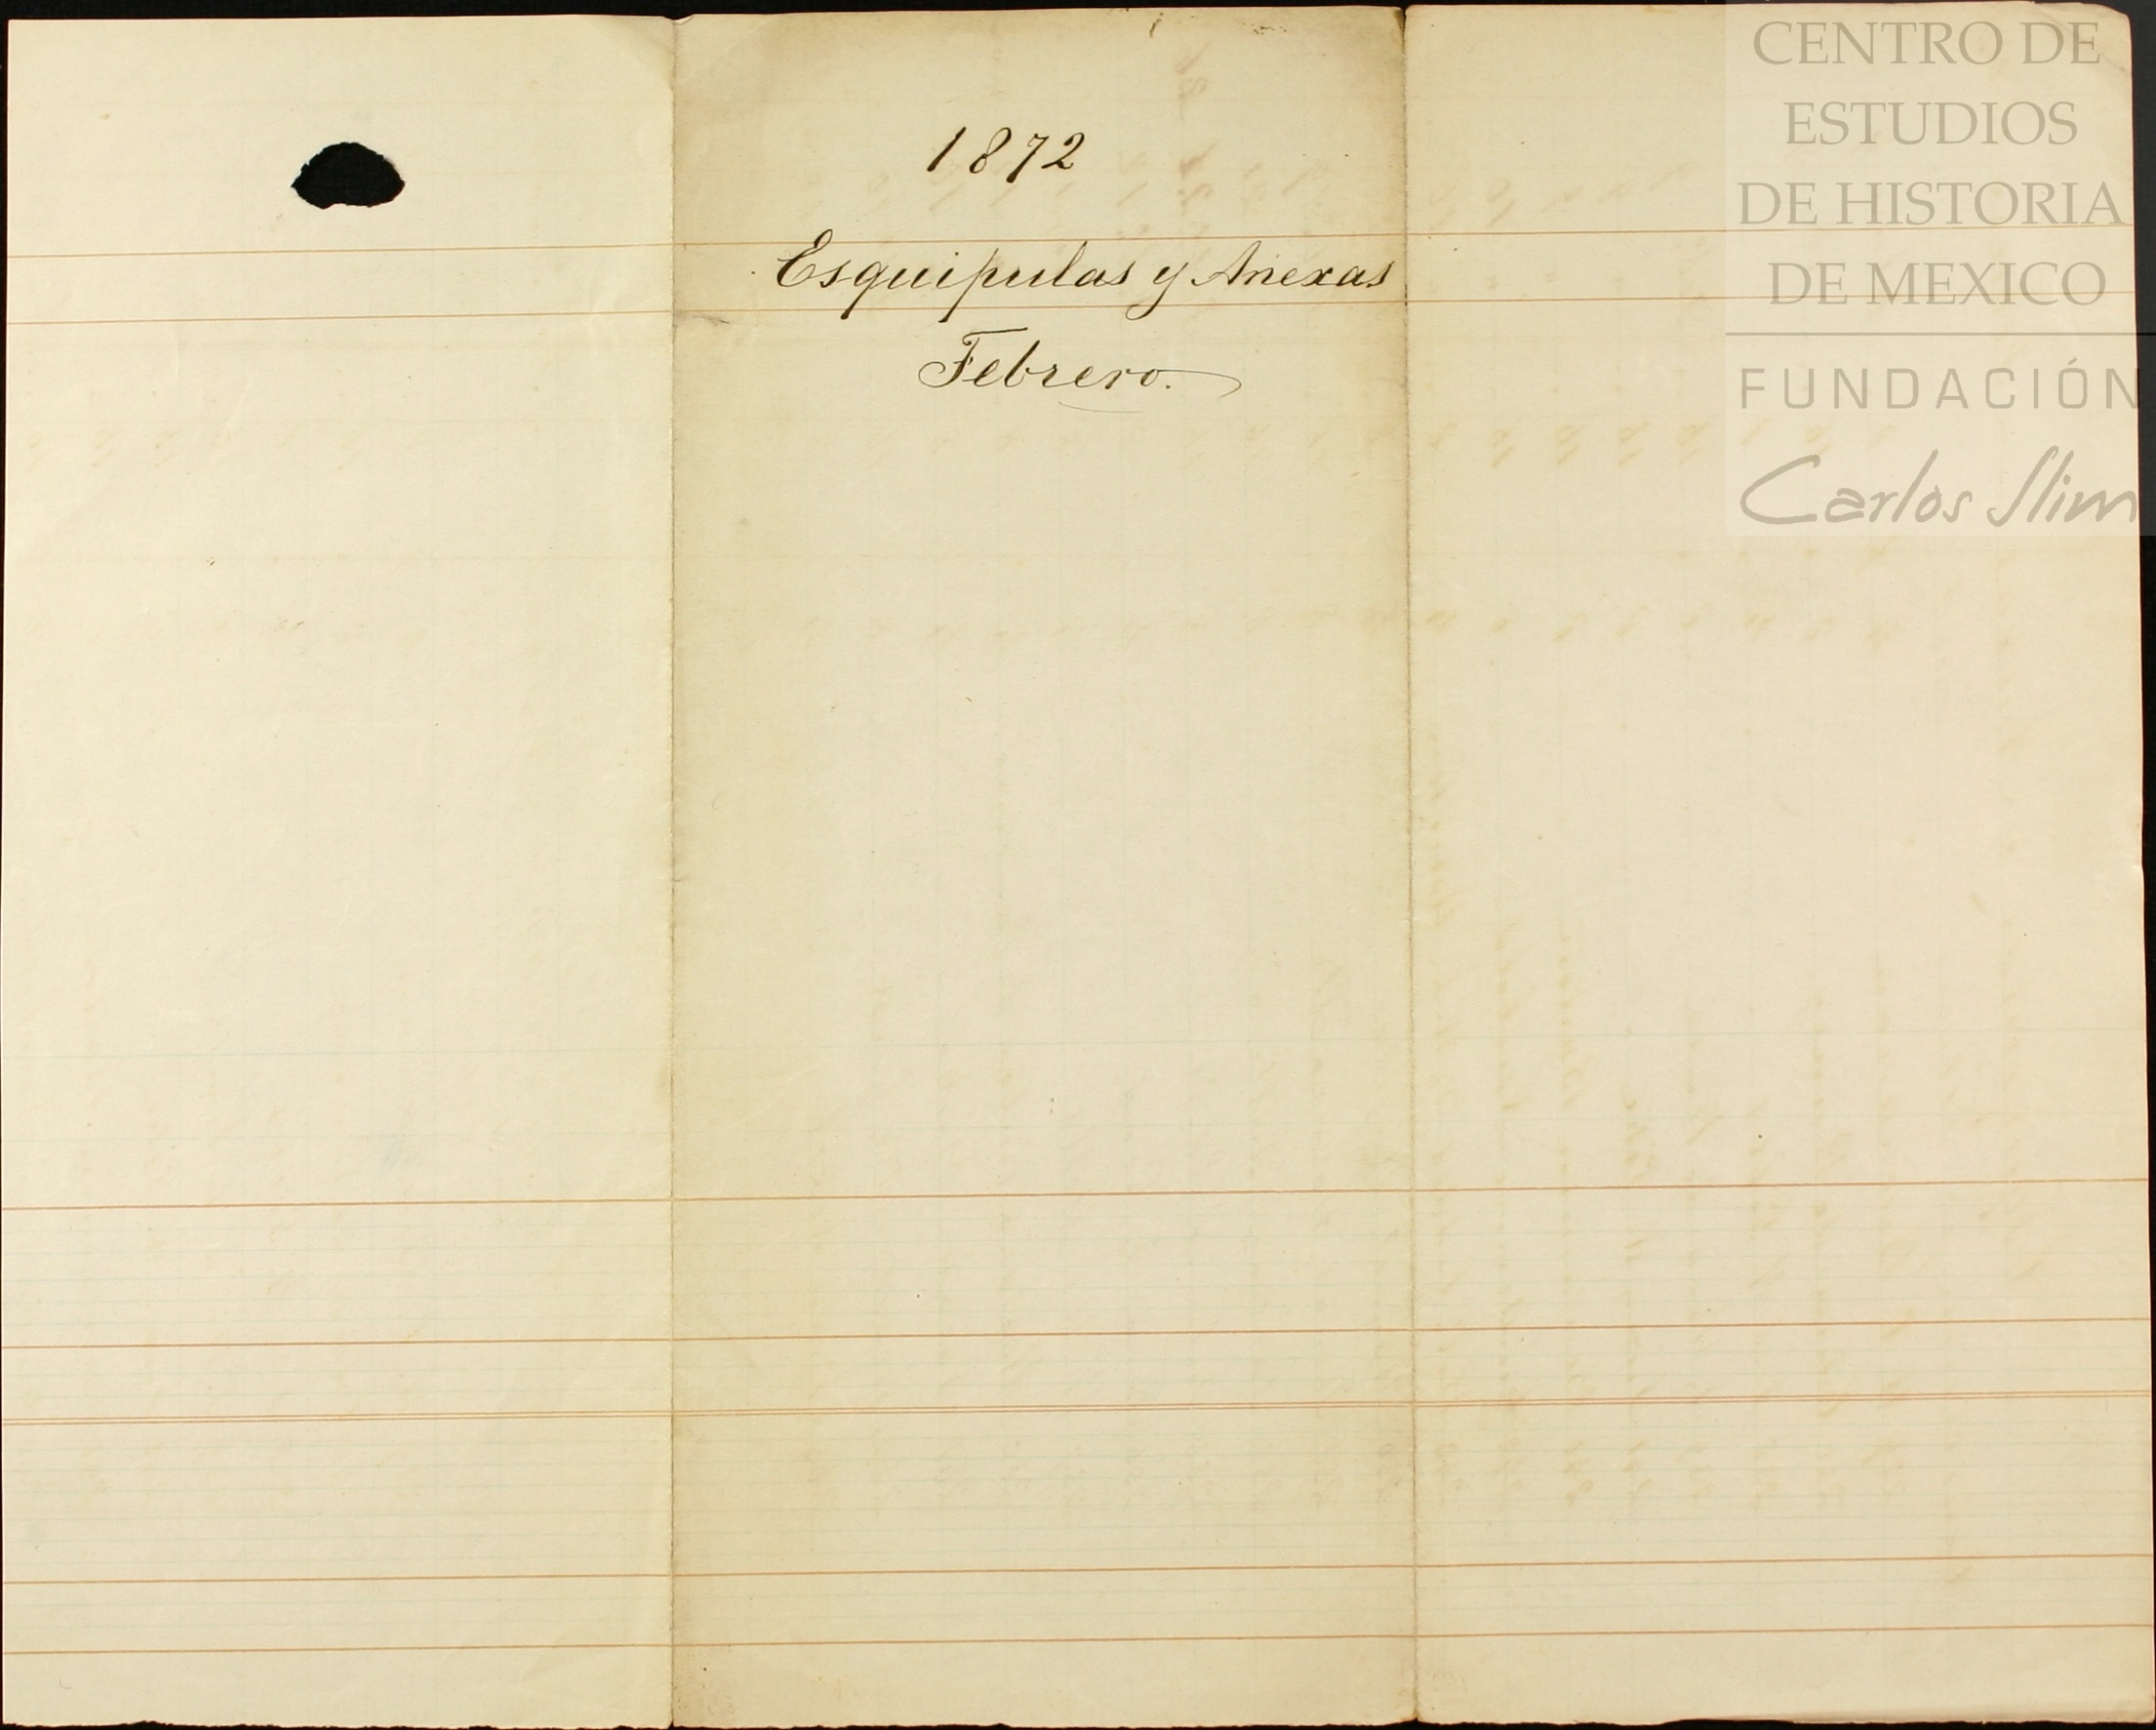 1872
Esquipulas y Anexas
Febrero.
CENTRO DE
ESTUDIOS
DE HISTORIA
DE MEXICO
FUNDACIÓN
Carlos Slim